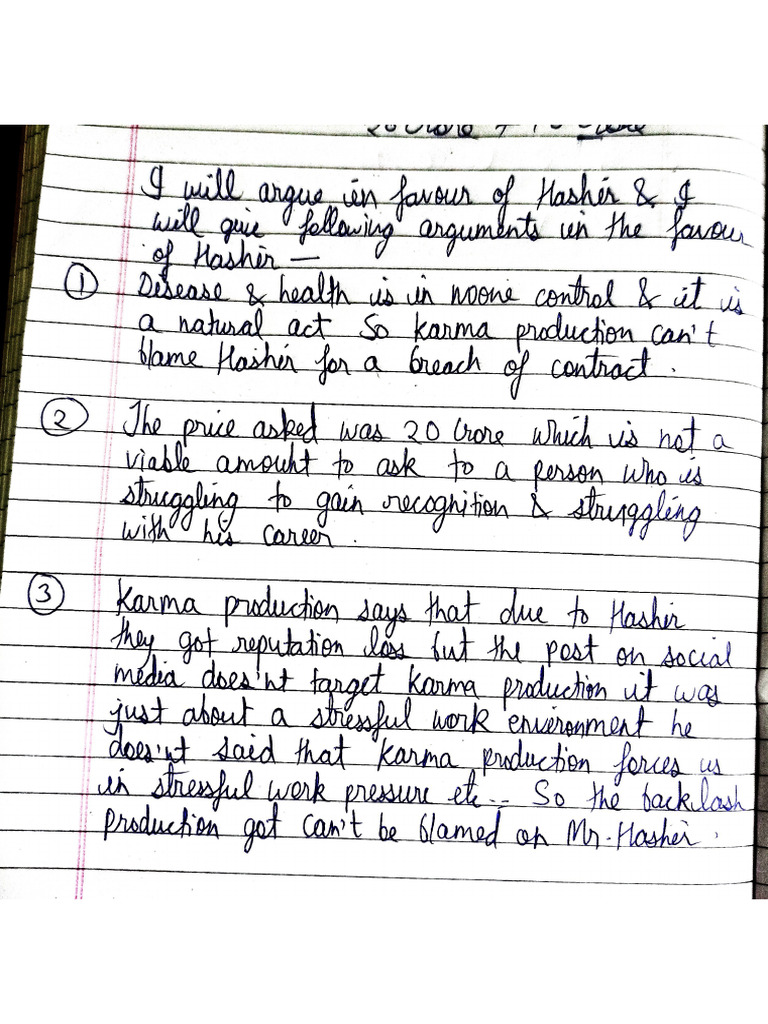 20 Crore
I will argue in favour of Hasher & I
will give following arguments in the favour
of Hasher —
① Disease & health is in noone control & it is
a natural act So Karma production can't
blame Hasher for a breach of contract.
② The price asked was 20 Crore which is not a
viable amount to ask to a person who is
struggling to gain recognition & struggling
with his career.
③ Karma production says that due to Hasher
they got reputation loss but the post on social
media does'nt target Karma production it was
just about a stressful work environment he
does'nt said that Karma production forces us
in stressful work pressure etc... So the backlash
production got can't be blamed on Mr. Hasher.